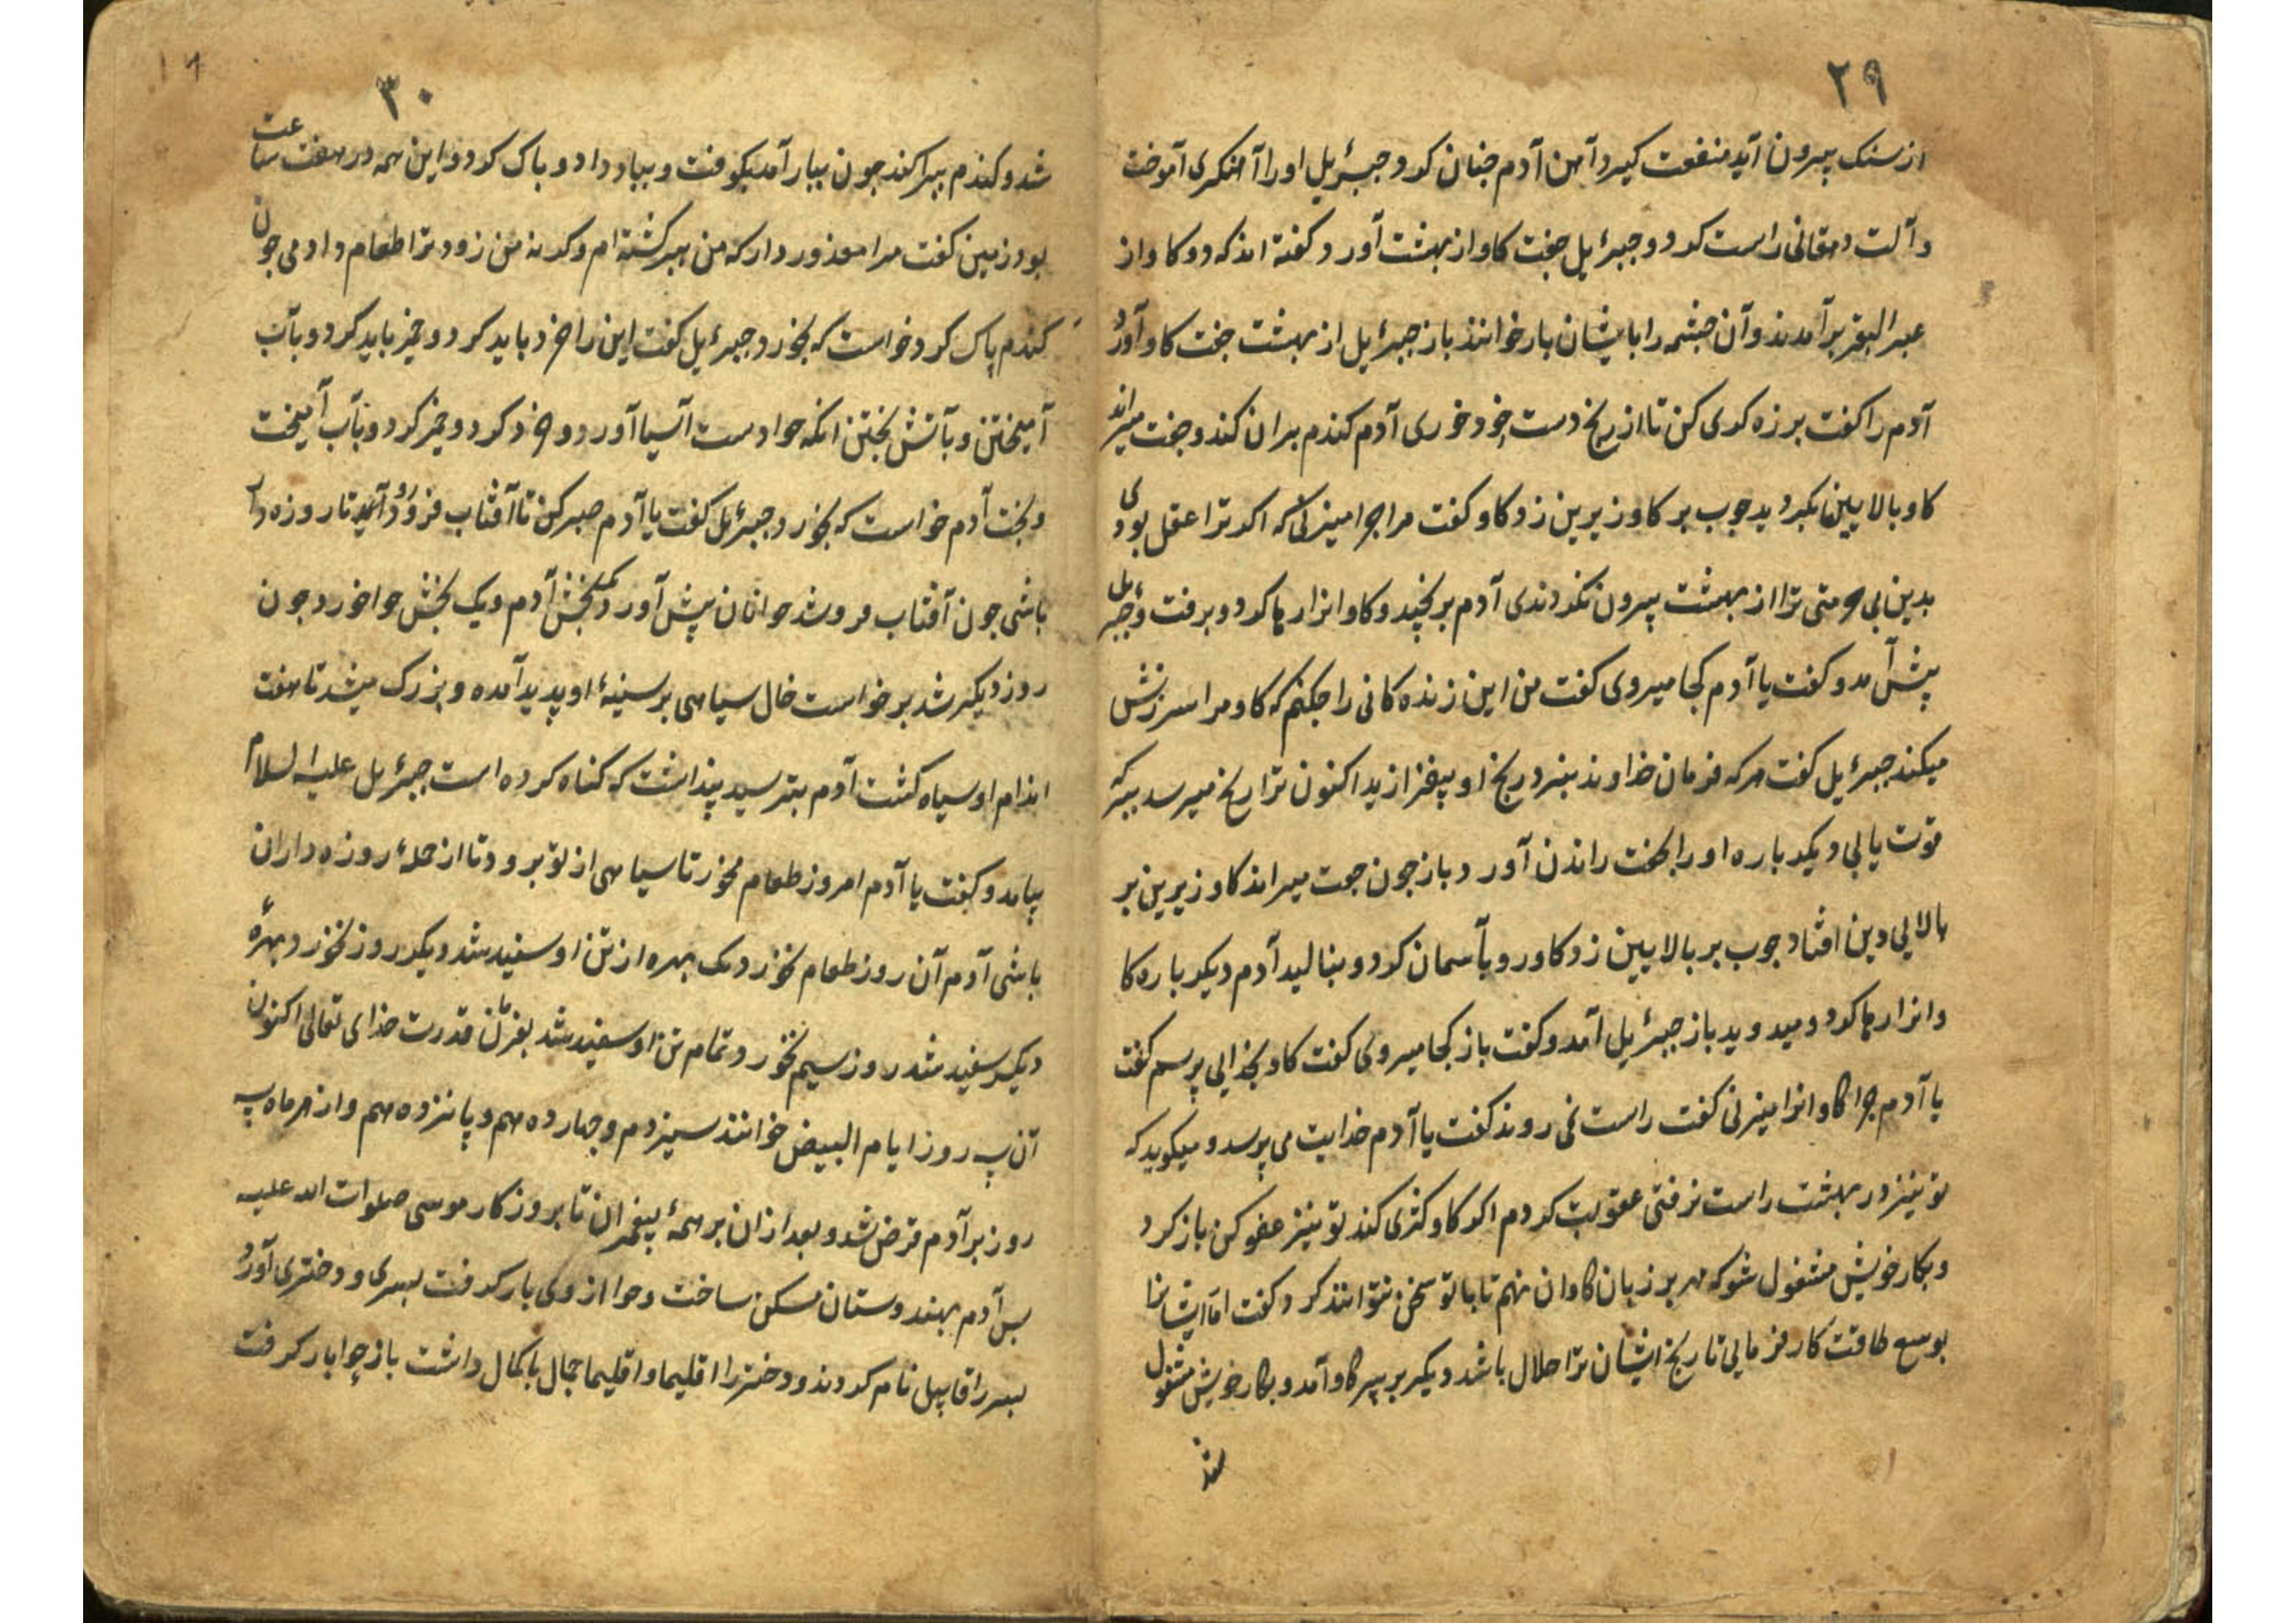 ۲۹
از سنک بیرون آید منفعت کیرد آهن آدم جنان کرد و جبرئیل او را آهنکری آموخت
و آلت دهقانی راست کرد و جبرئیل جفت کاو از بهشت آورد کفته اند که دو کاو از
عبر البقر برآمدند و آن جشمه را بایشان باز خوانند باز جبرئیل از بهشت جفت کاو آورد
آدم را کفت برزه کری کن تا از رنج دست خود خوری آدم کندم بران کند و جفت میراند
کاو بالایین بکردید جوب بر کاو زیرین زد کاو کفت مرا جرا میزنی که اکر ترا عقل بودی
بدین بی حرمتی ترا از بهشت بیرون نکردندی آدم برنجید و کاو انرا رها کرد و برفت و جبرئیل
پیش آمد و کفت یا آدم کجا میروی کفت من این زنده کانی را جکنم که کاو مرا سرزنش
میکند جبرئیل کفت هر که فرمان خداوند نبرد رنج او بیفزاید اکنون ترا رنج میرسد ببر که
قوت یابی دیکر باره او را بجفت راندن آورد باز جون جفت میراند کاو زیرین بر
بالایی دین افتاد جوب بر بالایین زد کاو رو بآسمان کرد و بنالید آدم دیکر باره کا
وانرا رها کرد و میدوید باز جبرئیل آمد و کفت باز کجا میروی کفت کاو بخدایی پرسم کفت
یا آدم جرا کاوانرا میزنی کفت راست نمی روند کفت یا آدم خدایت می پرسد و میکوید که
تو نیز در بهشت راست نرفتی عقوبت کردم اکر کاو کژی کند تو نیز عفو کن باز کرد
و بکار خویش مشغول شو که مهر بر زبان کاوان نهم تا با تو سخن نتوانند کرد کفت اما ایشانرا
بوسع طاقت کار فرمایی تا رنج ایشان ترا حلال باشد دیکر بر سر کاو آمد و بکار خویش مشغول
شد
۳۰
شد و کندم ببراکند جون ببار آمد بکوفت و بباد داد و باک کرد و این همه در هفت ساعت
بود زمین کفت مرا معذور دار که من ببر کشته ام و کرنه من زود ترا طعام دادمی جون
کندم پاک کرد خواست که بخورد جبرئیل کفت این را خرد باید کرد و خمیر باید کرد و بآب
آمیختن و بآتش پختن انکه حوا دست آسیا آورد و خرد کرد و خمیر کرد و بآب آمیخت
و پخت آدم خواست که بخورد جبرئیل کفت یا آدم صبر کن تا آفتاب فرو رود آنکه تا روزه دار
باشی جون آفتاب فرو شد حوا نان پیش آورد یک بخش آدم و یک بخش حوا خورد جون
روز دیکر شد برخواست خال سیاهی بر سینهٔ او پدید آمده و بزرک میشد تا هفت
اندام او سیاه کشت آدم بترسید پنداشت که کناه کرده است جبرئیل علیه السلام
بیامد و کفت یا آدم امروز طعام مخور تا سیاهی از تو برود تا از جملهٔ روزه داران
باشی آدم آن روز طعام نخورد یک بهره از تن او سفید شد دیکر روز نخورد بهرهٔ
دیکر سفید شد روز سیم نخورد تمام تن او سفید شد بفرمان قدرت خدای تعالی اکنون
آن سه روز ایام البیض خوانند سیزدهم و جهاردهم و پانزدهم و از هر ماه سه
روز بر آدم فرض شد و بعد از ان بر همهٔ پیغمبران تا بروزکار موسی صلوات الله علیه
پس آدم بهندوستان مسکن ساخت و حوا از وی بار کرفت پسری و دختری آورد
پسر را قابیل نام کردند و دختر را اقلیما و اقلیما جمال باکمال داشت باز حوا بار کرفت